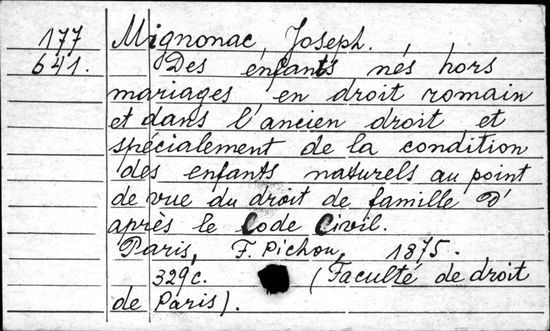 177 Mignonac, Joseph.
641. Des enfants nés hors
mariages en droit romain
et dans l'ancien droit et
spécialement de la condition
des enfants naturels au point
de vue du droit de famille d'
après le Code Civil.
Paris, F. Pichon, 1875.
329c. (Faculté de droit
de Paris).